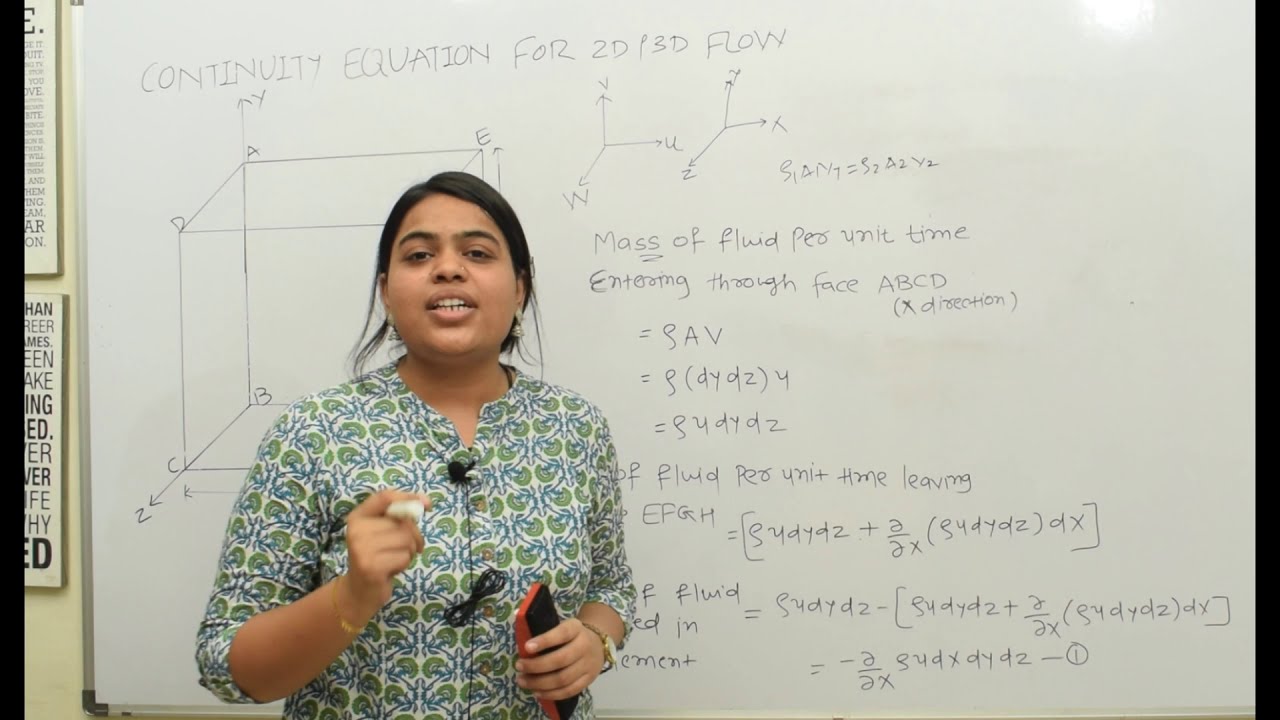 CONTINUITY EQUATION FOR 2D & 3D FLOW
Y
A
E
D
B
C
Z
V
U
W
Y
X
Z
ρ₁A₁V₁ = ρ₂A₂V₂
Mass of fluid Per unit time
Entering through face ABCD
(X direction)
= ρAV
= ρ(dydz)u
= ρudydz
of fluid Per unit time leaving
EFGH = [ρudydz + ∂/∂x (ρudydz) dx]
of fluid = ρudydz - [ρudydz + ∂/∂x (ρudydz) dx]
ed in
ement = -∂/∂x ρudxdydz - ①
E.
QUIT.
STOP
YOU
OVE.
THEM
AND
TEAM,
AR
ON.
HAN
REER
AMES.
EEN
AKE
ING
SED.
VER
VER
IFE
WHY
ED